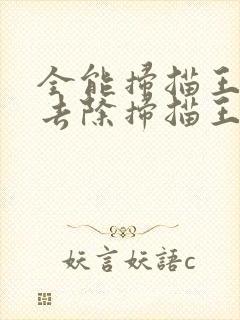 全能掃描王
去除掃描王
妖言妖語c